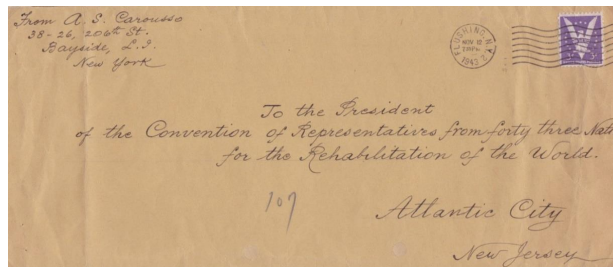 From A. S. Carousso
38-26, 206th St.
Bayside, L.I.
New York
FLUSHING, N.Y.
NOV 12
1943
To the President
of the Convention of Representatives from forty three Nati
for the Rehabilitation of the World.
107
Atlantic City
New Jersey